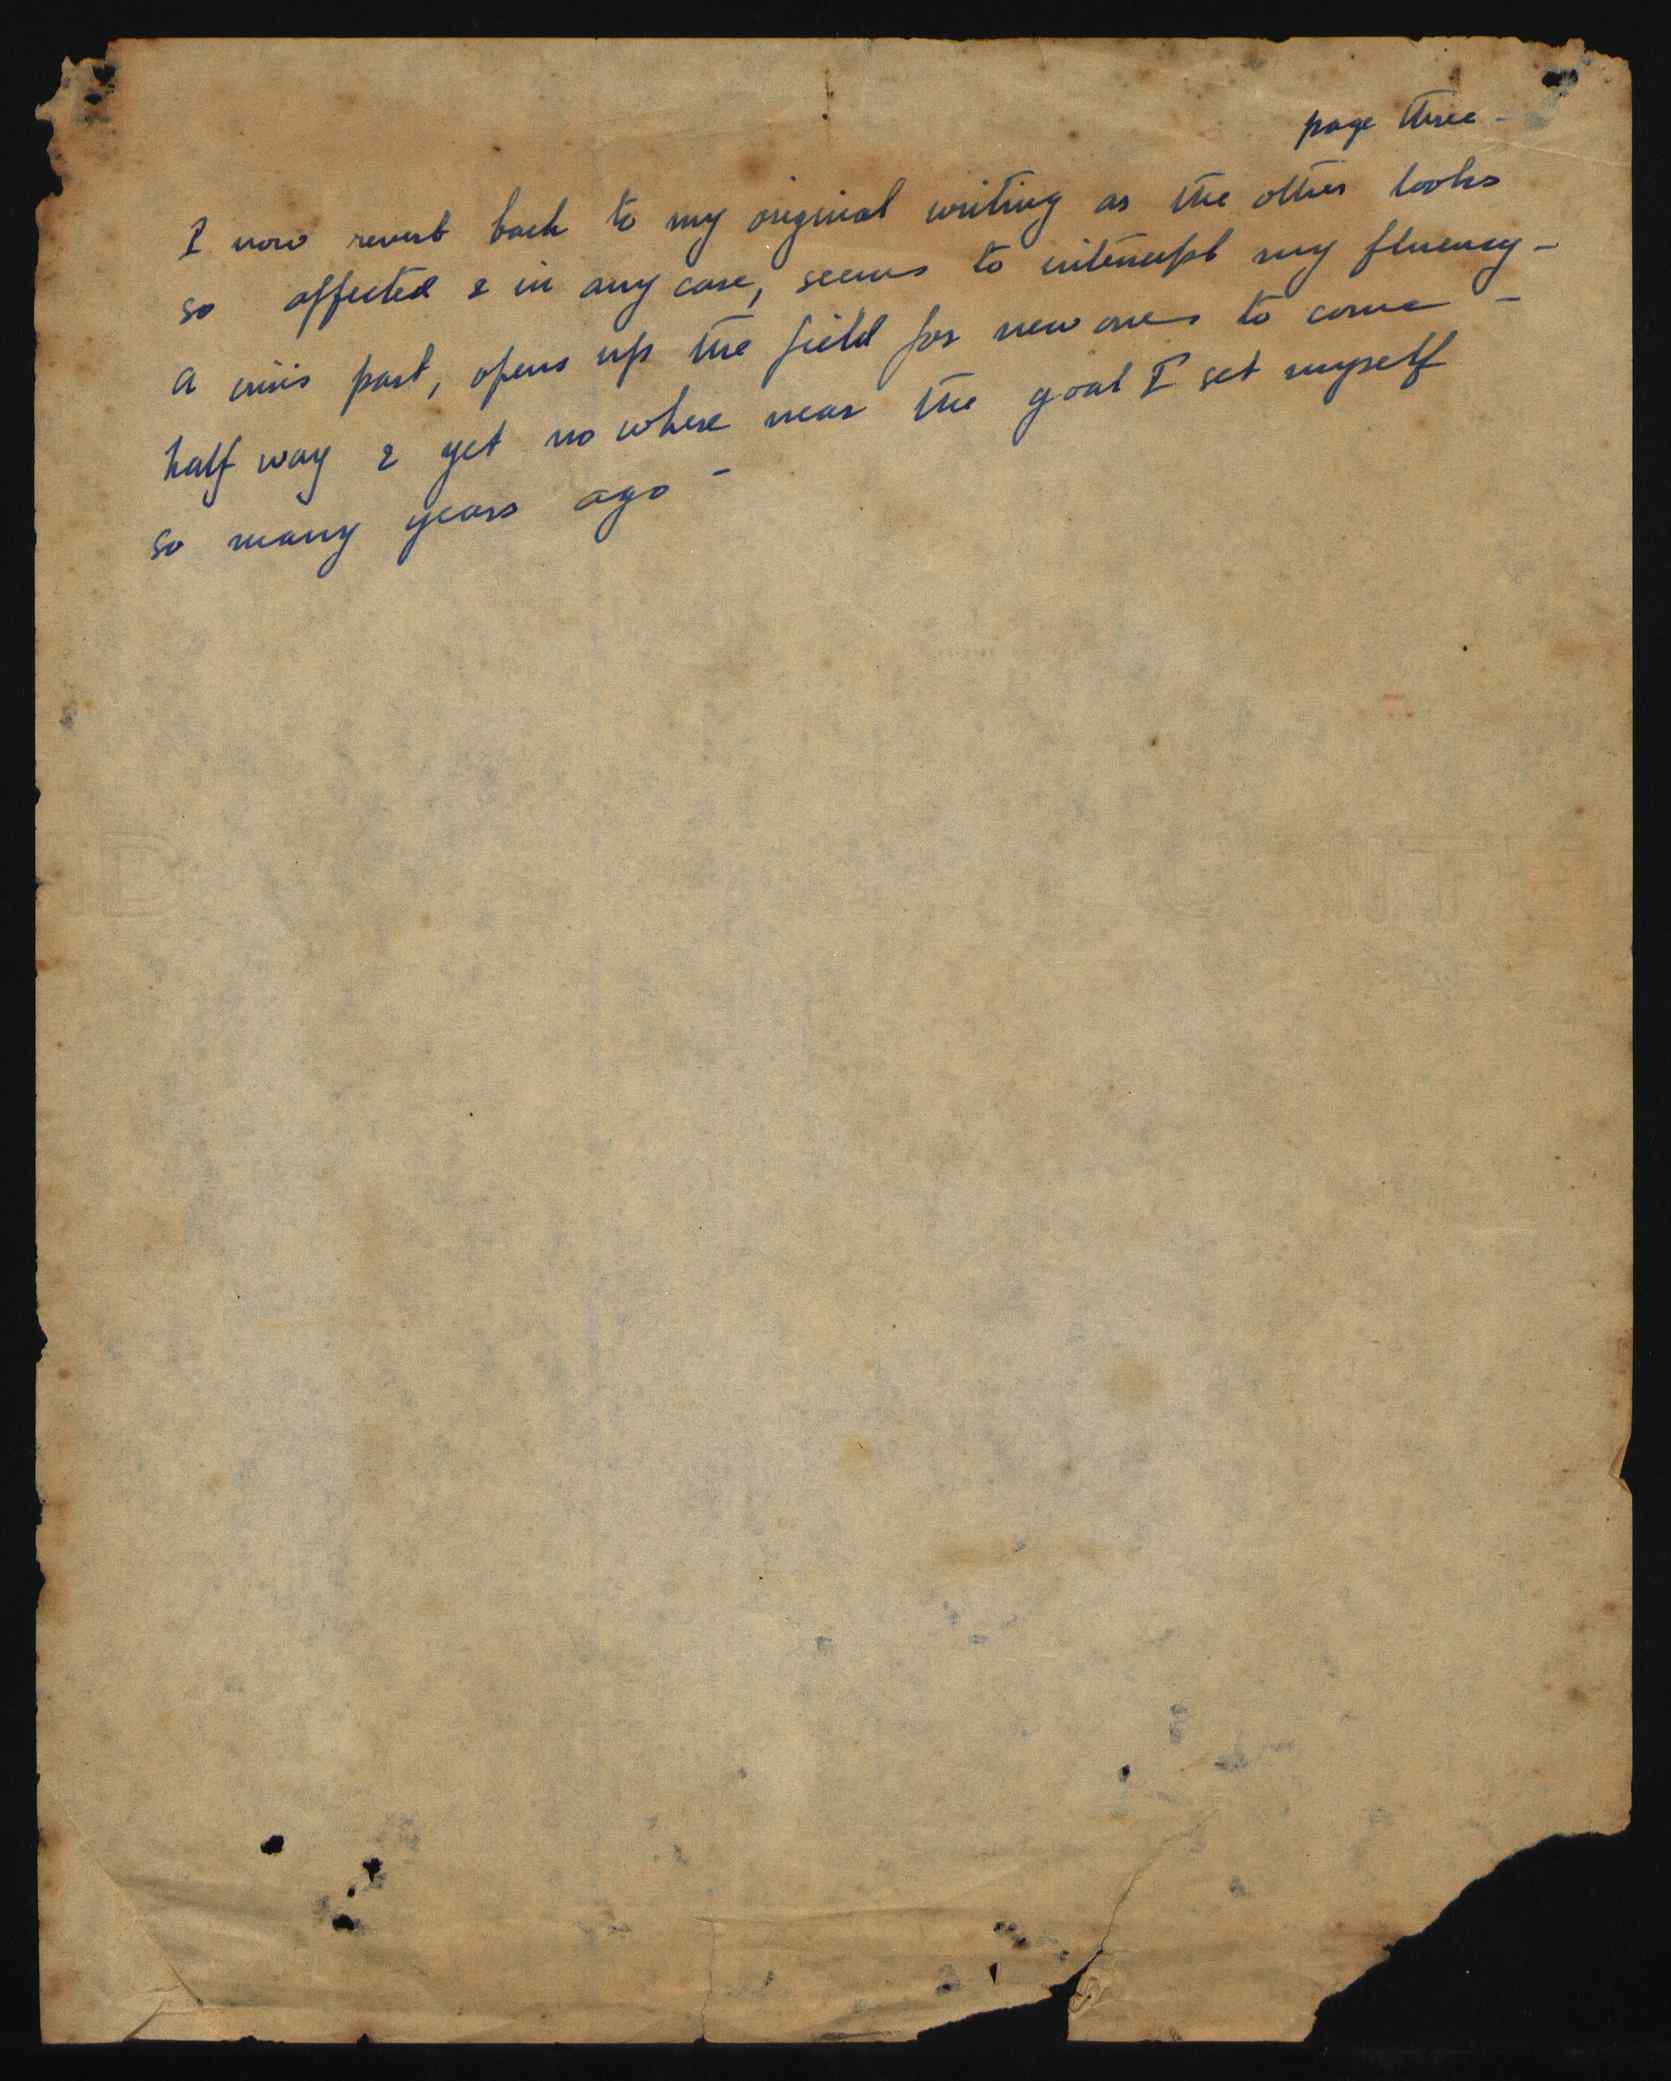 page three -
I now revert back to my original writing as the other looks
so affected & in any case, seems to interrupt my fluency -
A crisis past, opens up the field for new ones to come -
half way & yet no where near the goal I set myself
so many years ago -